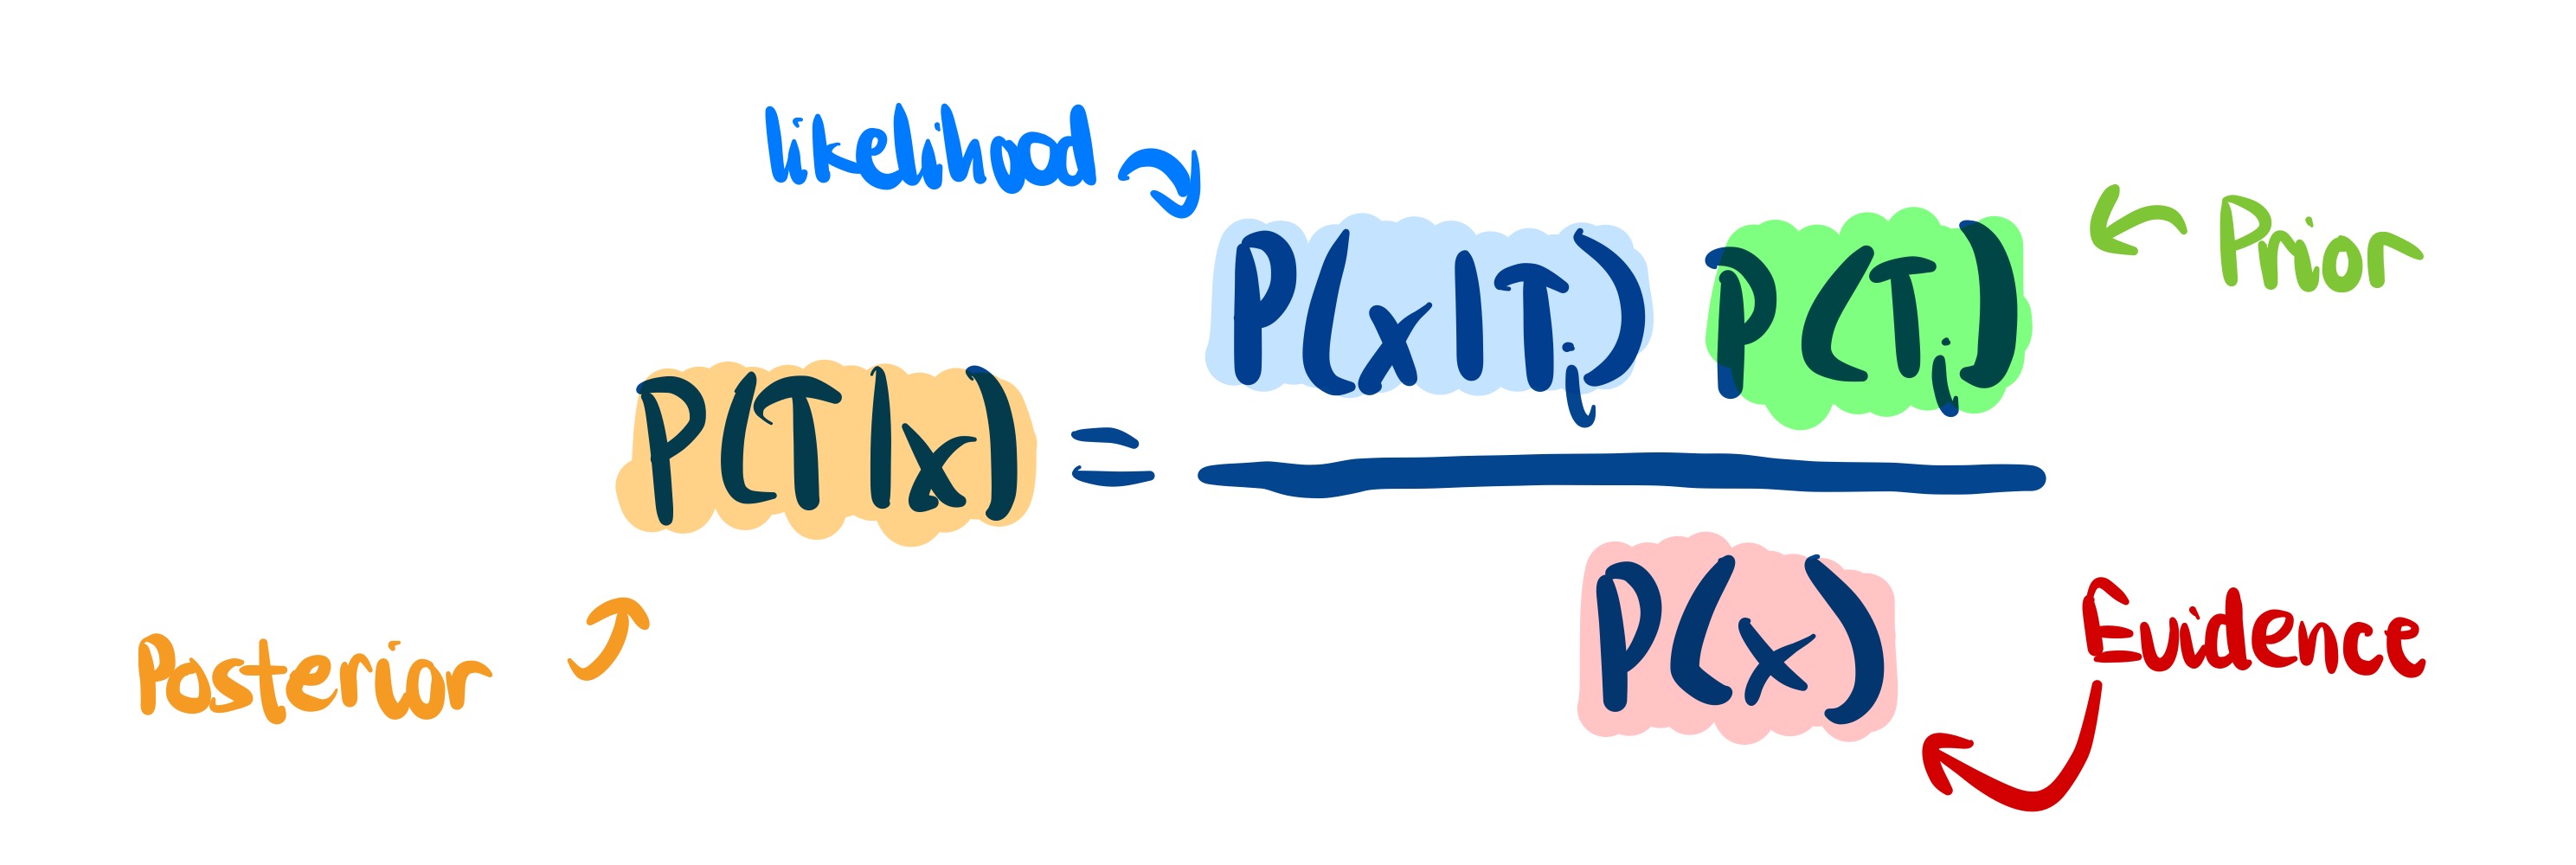 likelihood
Prior
P(x|Ti) P(Ti)
P(T|x) =
P(x)
Posterior
Evidence